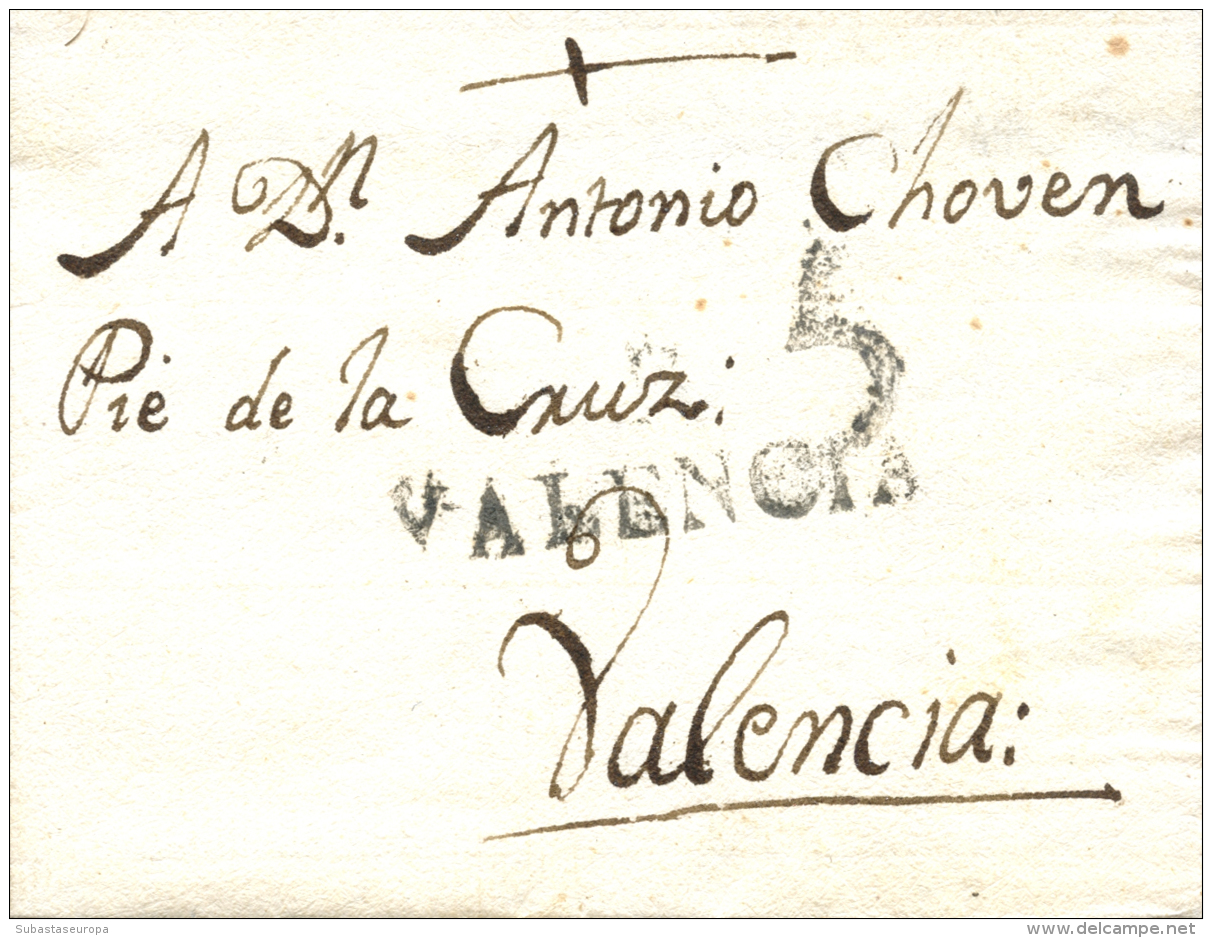 A Dn. Antonio Choven
5
Pie de la Cruz:
VALENCIA
Valencia:
Subastaseuropa
www.delcampe.net